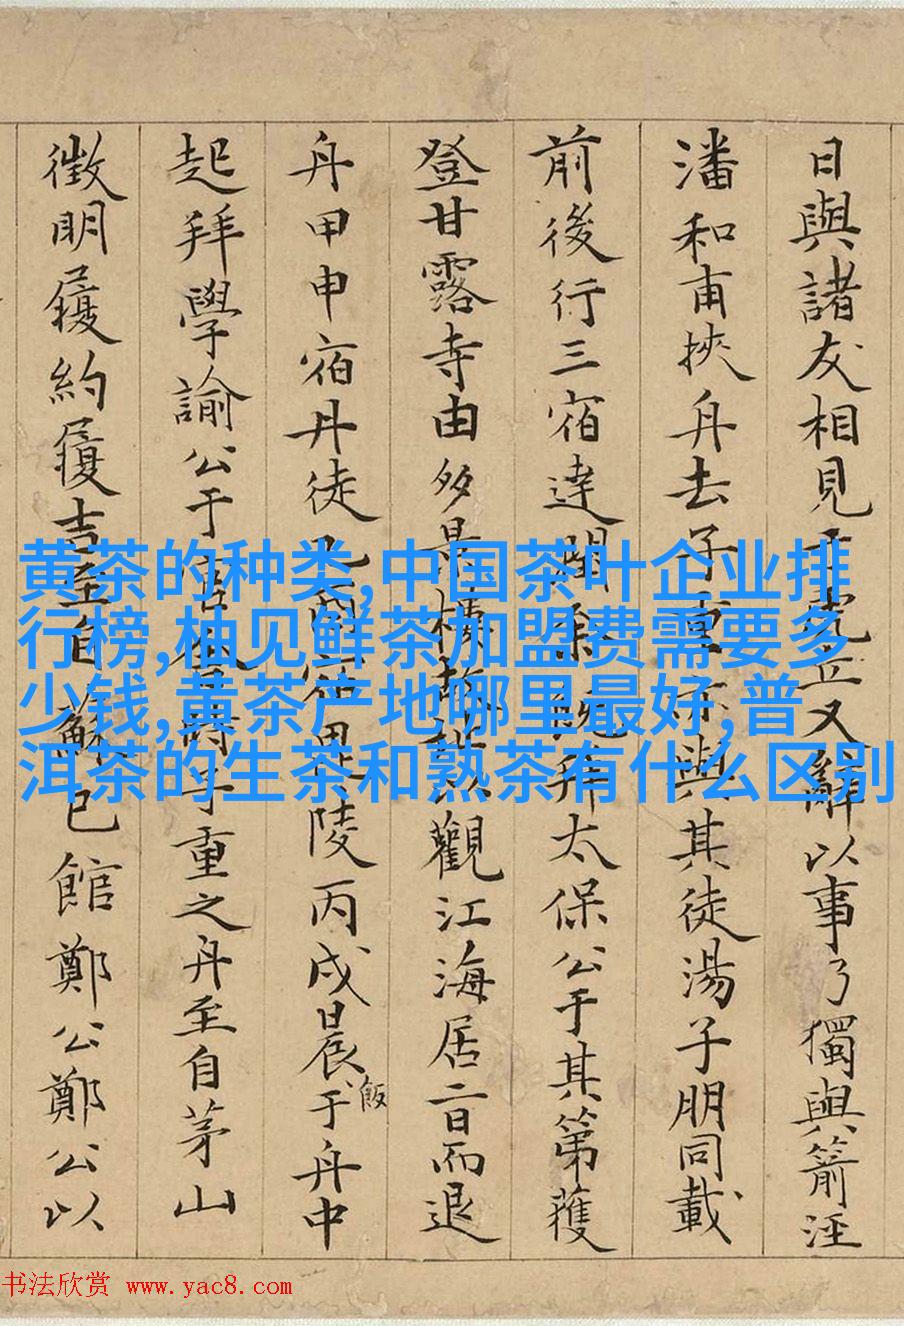 日與諸友相見于虎丘又辭以事乃獨與箭涇
潘和甫挾舟去子重亦與其徒湯子朋同載
前後行三宿達余既拜太保公于其第獲
登甘露寺由多景樓故址以觀江海居二日而退
舟甲申宿丹徒乙酉宿毘陵丙戌晨飯于舟中
起拜學諭公于官時子重之舟至自茅山
徵明履約履吉至自蘇已館鄭公鄭公以
黄茶的种类,中国茶叶企业排
行榜,柚见鲜茶加盟费需要多
少钱,黄茶产地哪里最好,普
洱茶的生茶和熟茶有什么区别
书法欣赏 www.yac8.com